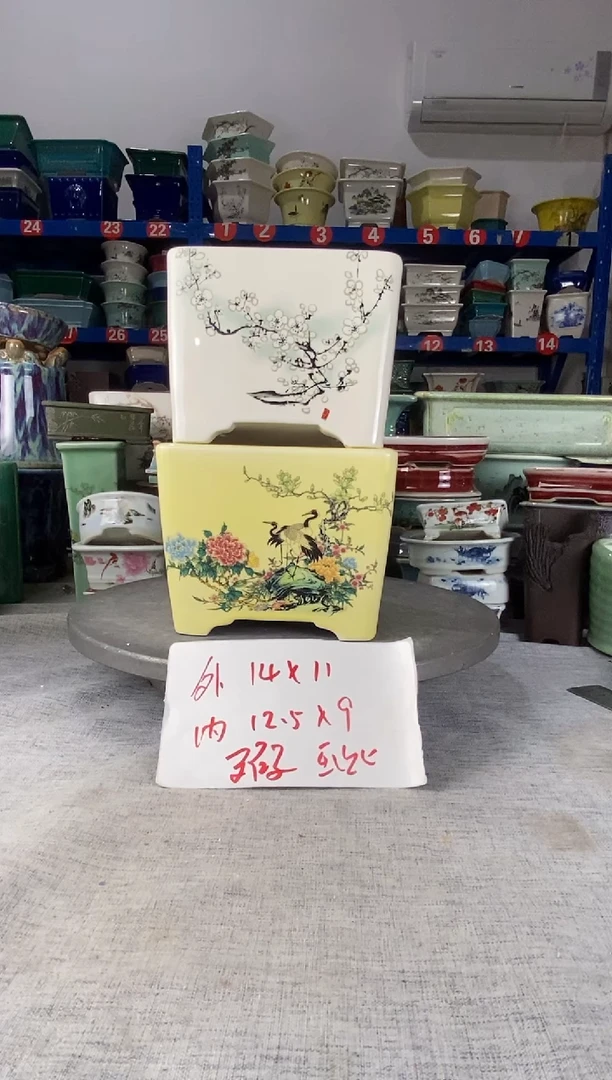 24
23
22
1
2
3
4
5
6
7
26
25
12
13
14
外 14x11
内 12.5x9